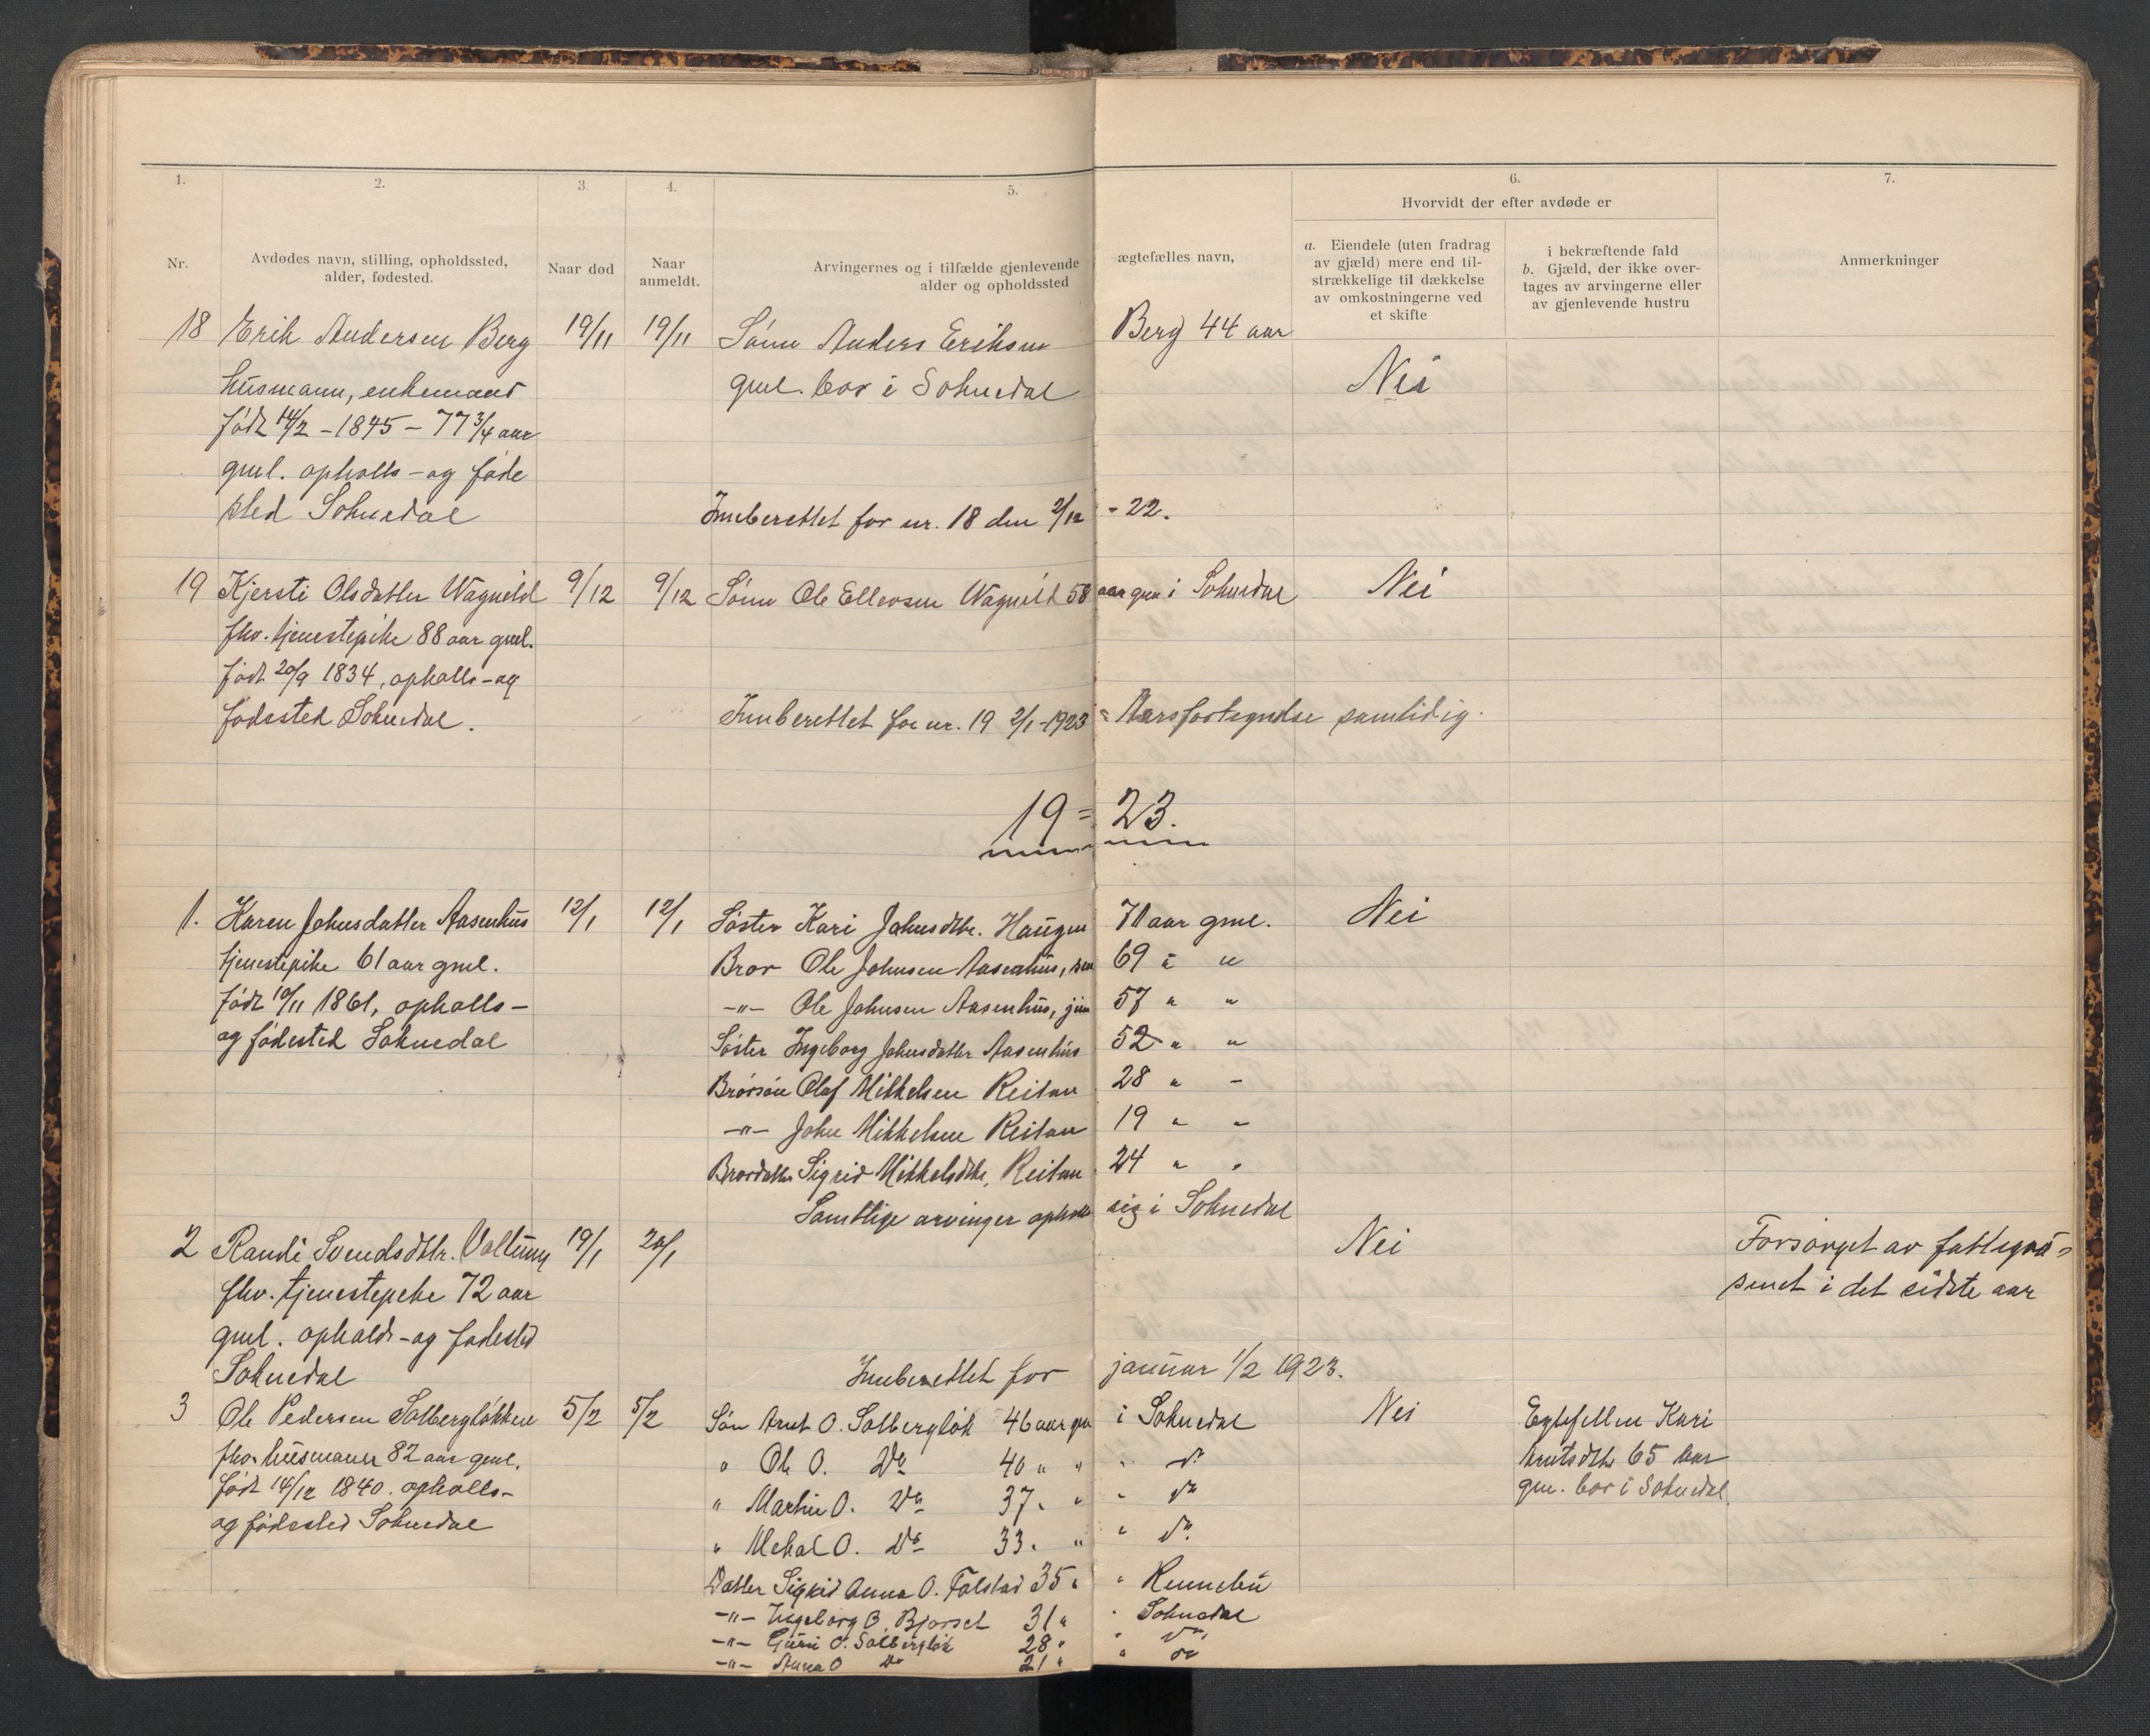 1. 2. 3. 4. 5. 6. 7.
Hvorvidt der efter avdøde er
Nr. Avdødes navn, stilling, opholdssted, alder, fødested. Naar død Naar anmeldt. Arvingernes og i tilfælde gjenlevende ægtefælles navn, alder og opholdssted
a. Eiendele (uten fradrag av gjæld) mere end tilstrækkelige til dækkelse av omkostningerne ved et skifte
i bekræftende fald b. Gjæld, der ikke overtages av arvingerne eller av gjenlevende hustru
Anmerkninger
18 Erik Andersen Berg 19/11 19/11 Sønn Anders Eriksen Berg 44 aar
husmann, enkemand gml. bor i Soknedal Nei
født 14/2 - 1845 - 77 3/4 aar
gml. opholls- og føde
sted Soknedal
Inberettet for nr. 18 den 2/12 - 22.
19 Kjersti Olsdatter Wagnild 9/12 9/12 Sønn Ole Ellevsen Wagnild 58 aar gm i Soknedal Nei
fhv. tjenestepike 88 aar gml.
født 20/9 1834, opholls- og
fødested Soknedal.
Innberettet for nr. 19 2/1-1923 = Aarsfortegnelse samtidig.
19 = 23.
1. Karen Johnsdatter Aasenhus 12/1 12/1 Søster Kari Johnsdtr. Haugen 71 aar gml. Nei
tjenestepike 61 aar gml. Bror Ole Johnsen Aasenhus, sen 69 " "
født 10/11 1861, opholls- -"- Ole Johnsen Aasenhus, jun 57 " "
og fødested Soknedal Søster Ingeborg Johnsdatter Aasenhus 52 " "
Brorsøn Olaf Mikkelsen Reitan 28 " -
-"- John Mikkelsen Reitan 19 " "
Brordatter Sigrid Mikkelsdtr. Reitan 24 " "
Samtlige arvinger opholder sig i Soknedal
2 Randi Svendsdtr. Vollum 19/1 20/1 Nei Forsørget av fattigvæ-
fhv. tjenestepike 72 aar senet i det sidste aar
gml. opholds- og fødested
Soknedal
Innberettet for januar 1/2 1923.
3 Ole Pedersen Solbergløkken 5/2 5/2 Søn Arnt O. Solbergløk 46 aar gm i Soknedal Nei Egtefellen Kari
fhv. husmann 82 aar gml. " Ole O. Do 40 " " " do Arntsdtr 65 aar
født 14/12 1840. opholls- " Martin O. Do 37 " " " do gm. bor i Soknedal.
og fødested Soknedal " Mekal O. Do 33 " " " do
Datter Sigrid Anna O. Folstad 35 " " Rennebu
-"- Ingeborg O. Bjørset 31 " " Soknedal
-"- Guri O. Solbergløk 28 " " do
-"- Anna O Do 21 " " do